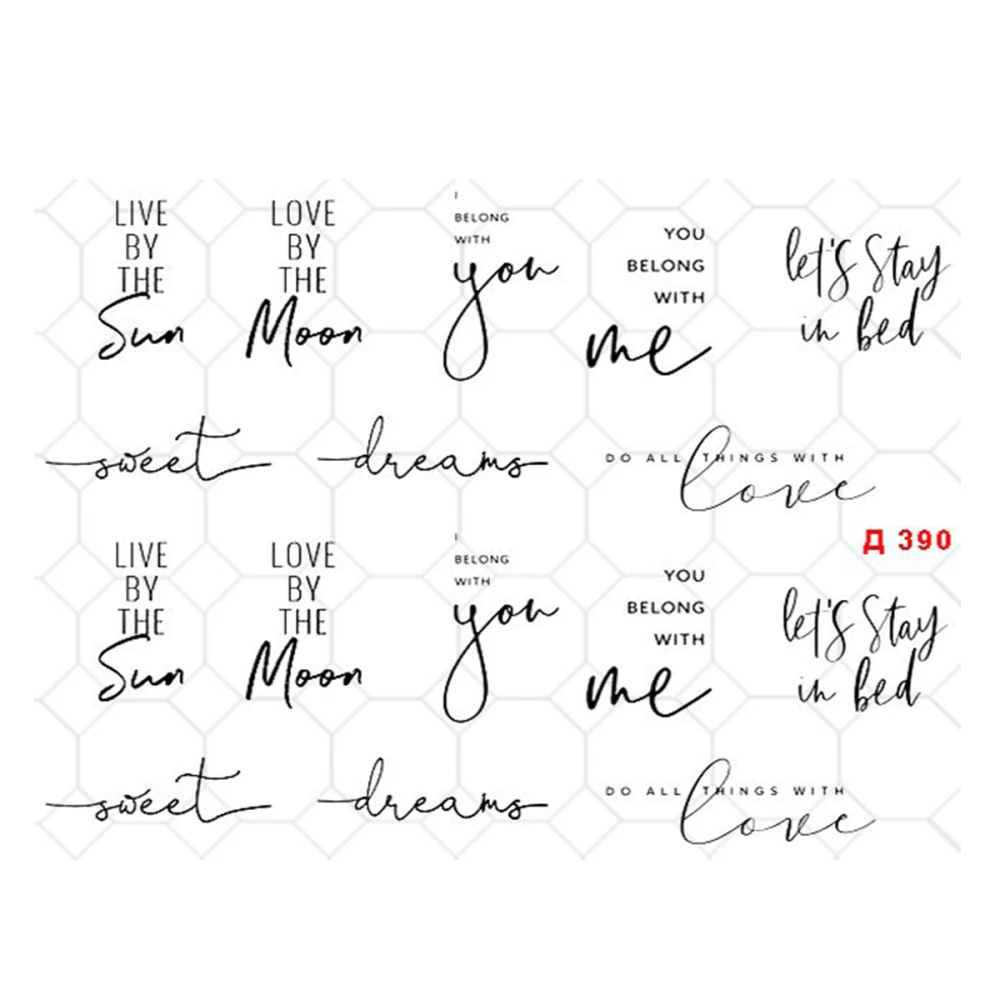 LIVE
BY
THE
Sun
LOVE
BY
THE
Moon
I
BELONG
WITH
you
YOU
BELONG
WITH
me
let's stay
in bed
sweet
dreams
DO ALL THINGS WITH
love
Д 390
LIVE
BY
THE
Sun
LOVE
BY
THE
Moon
I
BELONG
WITH
you
YOU
BELONG
WITH
me
let's stay
in bed
sweet
dreams
DO ALL THINGS WITH
love